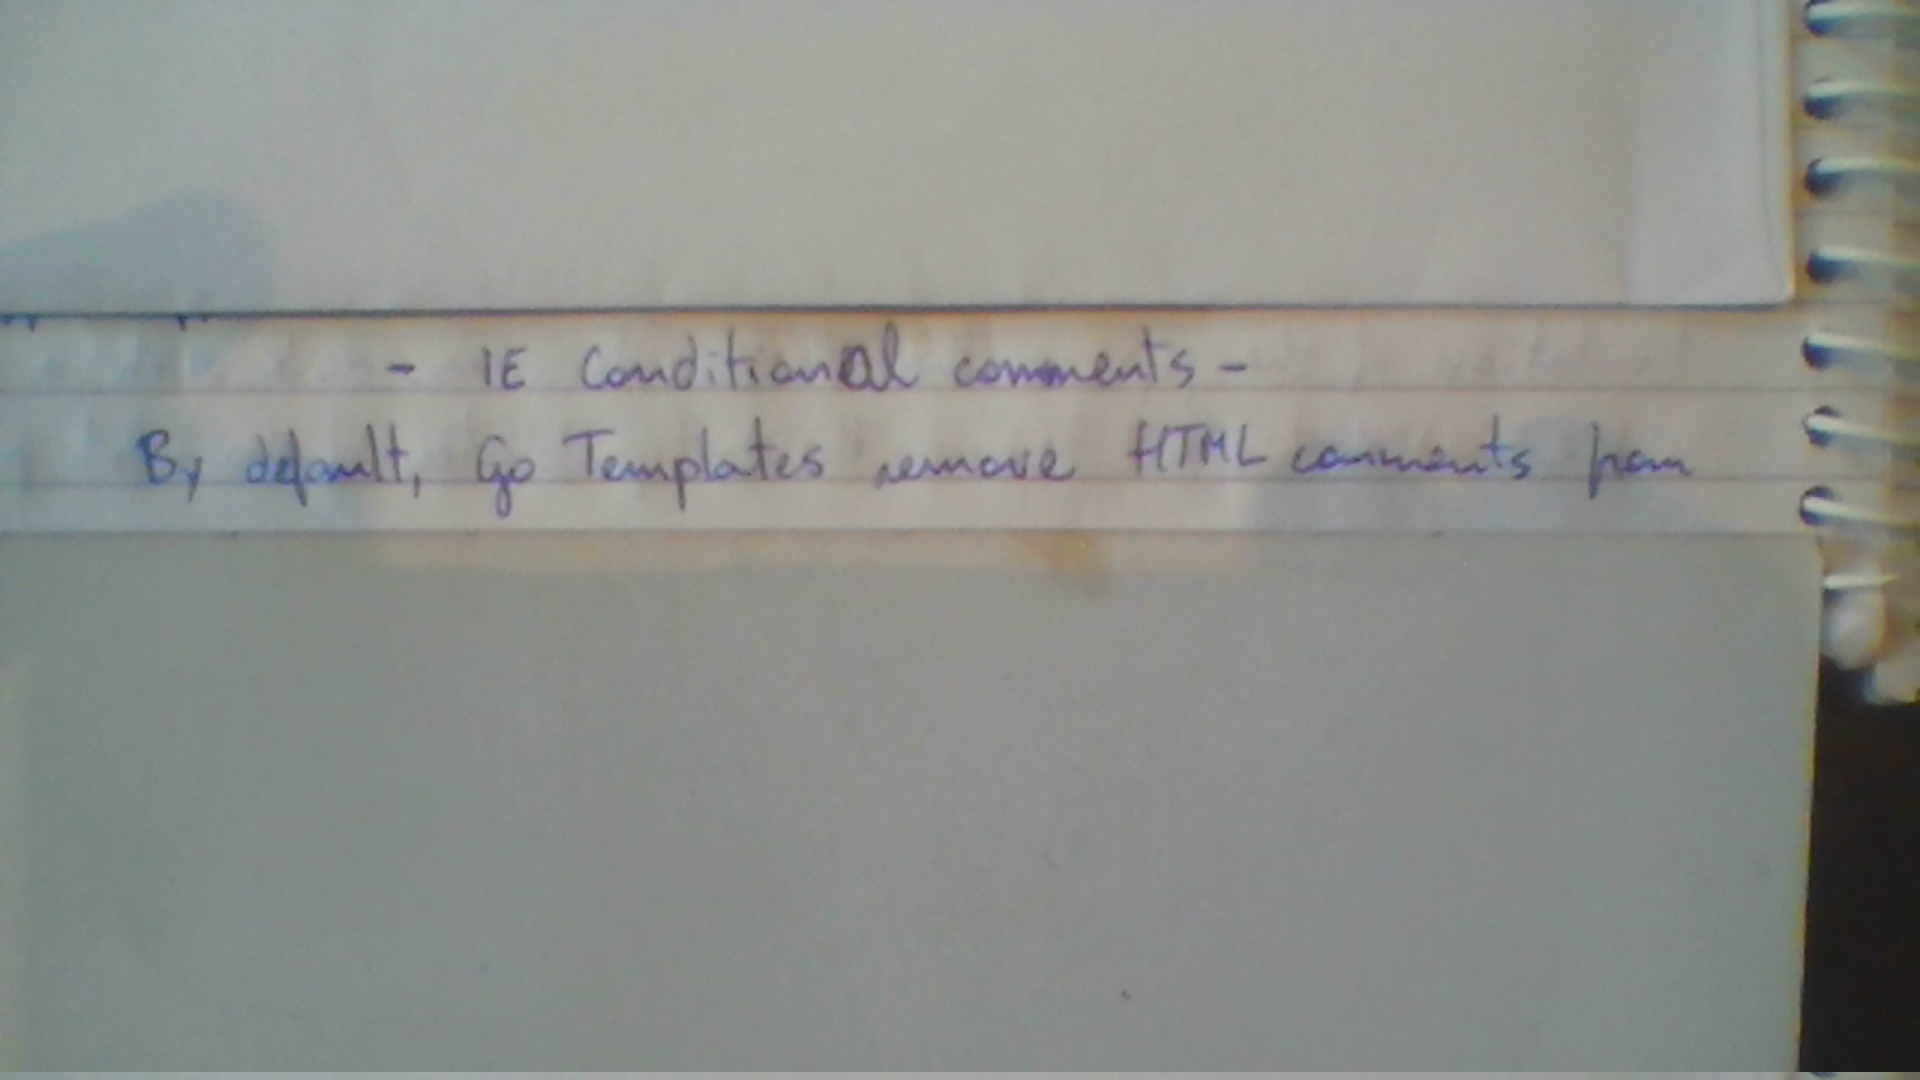 - IE Conditional comments -
By default, Go Templates remove HTML comments from